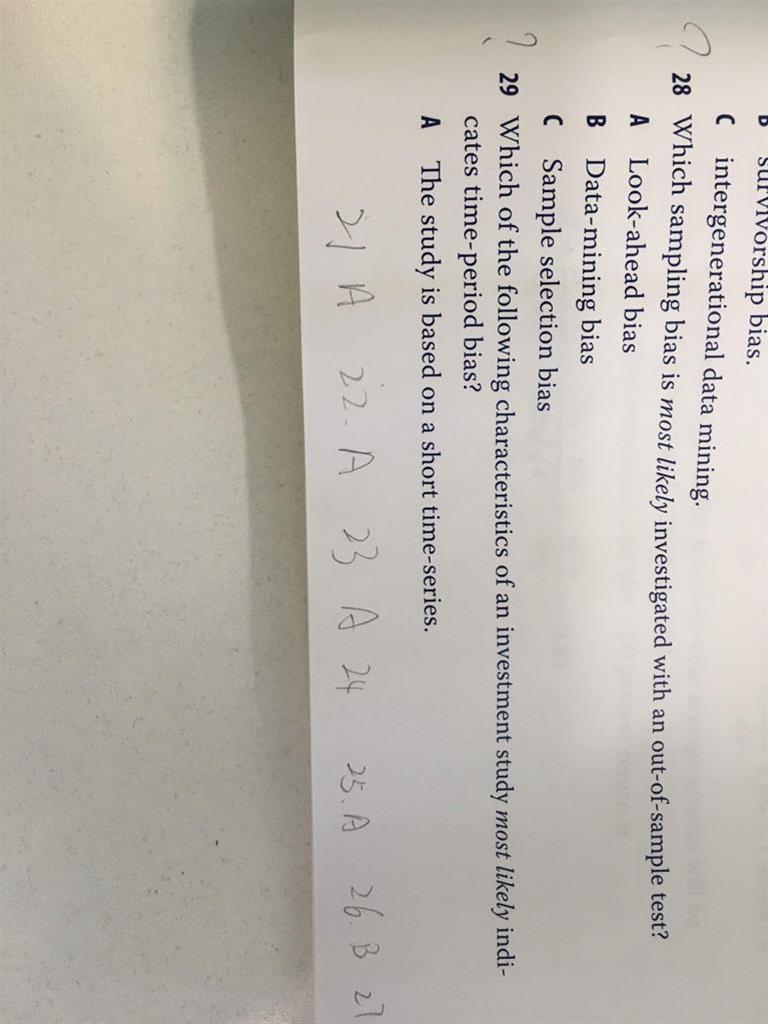 B survivorship bias.
C intergenerational data mining.
? 28 Which sampling bias is most likely investigated with an out-of-sample test?
A Look-ahead bias
B Data-mining bias
C Sample selection bias
? 29 Which of the following characteristics of an investment study most likely indi-
cates time-period bias?
A The study is based on a short time-series.
21 A 22. A 23 A 24 25. A 26. B 27